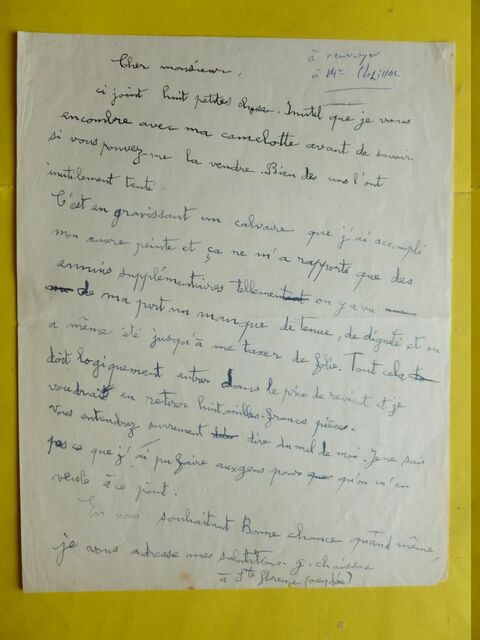 à renvoyer
à Mr Chaissac
Cher monsieur,
ci joint huit petites choses. Inutil que je vous
encombre avec ma camelotte avant de savoir
si vous pouvez me la vendre. Bien des uns l'ont
inutilement tenté.
C'est en gravissant un calvaire que j'ai accompli
mon œuvre peinte et ça ne m'a rapporté que des
ennuis supplémentaires tellement on y a vu
de ma part un manque de tenue, de dignité et on
a même été jusqu'à me taxer de folie. Tout cela
doit logiquement entrer dans le prix de revient et je
voudrais en retirer huit milles francs pièces.
Vous entendrez surement dire du mal de moi. Je ne sais
pas ce que j'ai pu faire aux gens pour qu'on m'en
veule à ce point.
En vous souhaitant Bonne chance quand même,
je vous adresse mes salutations. g. chaissac
à Ste florence (vendée)